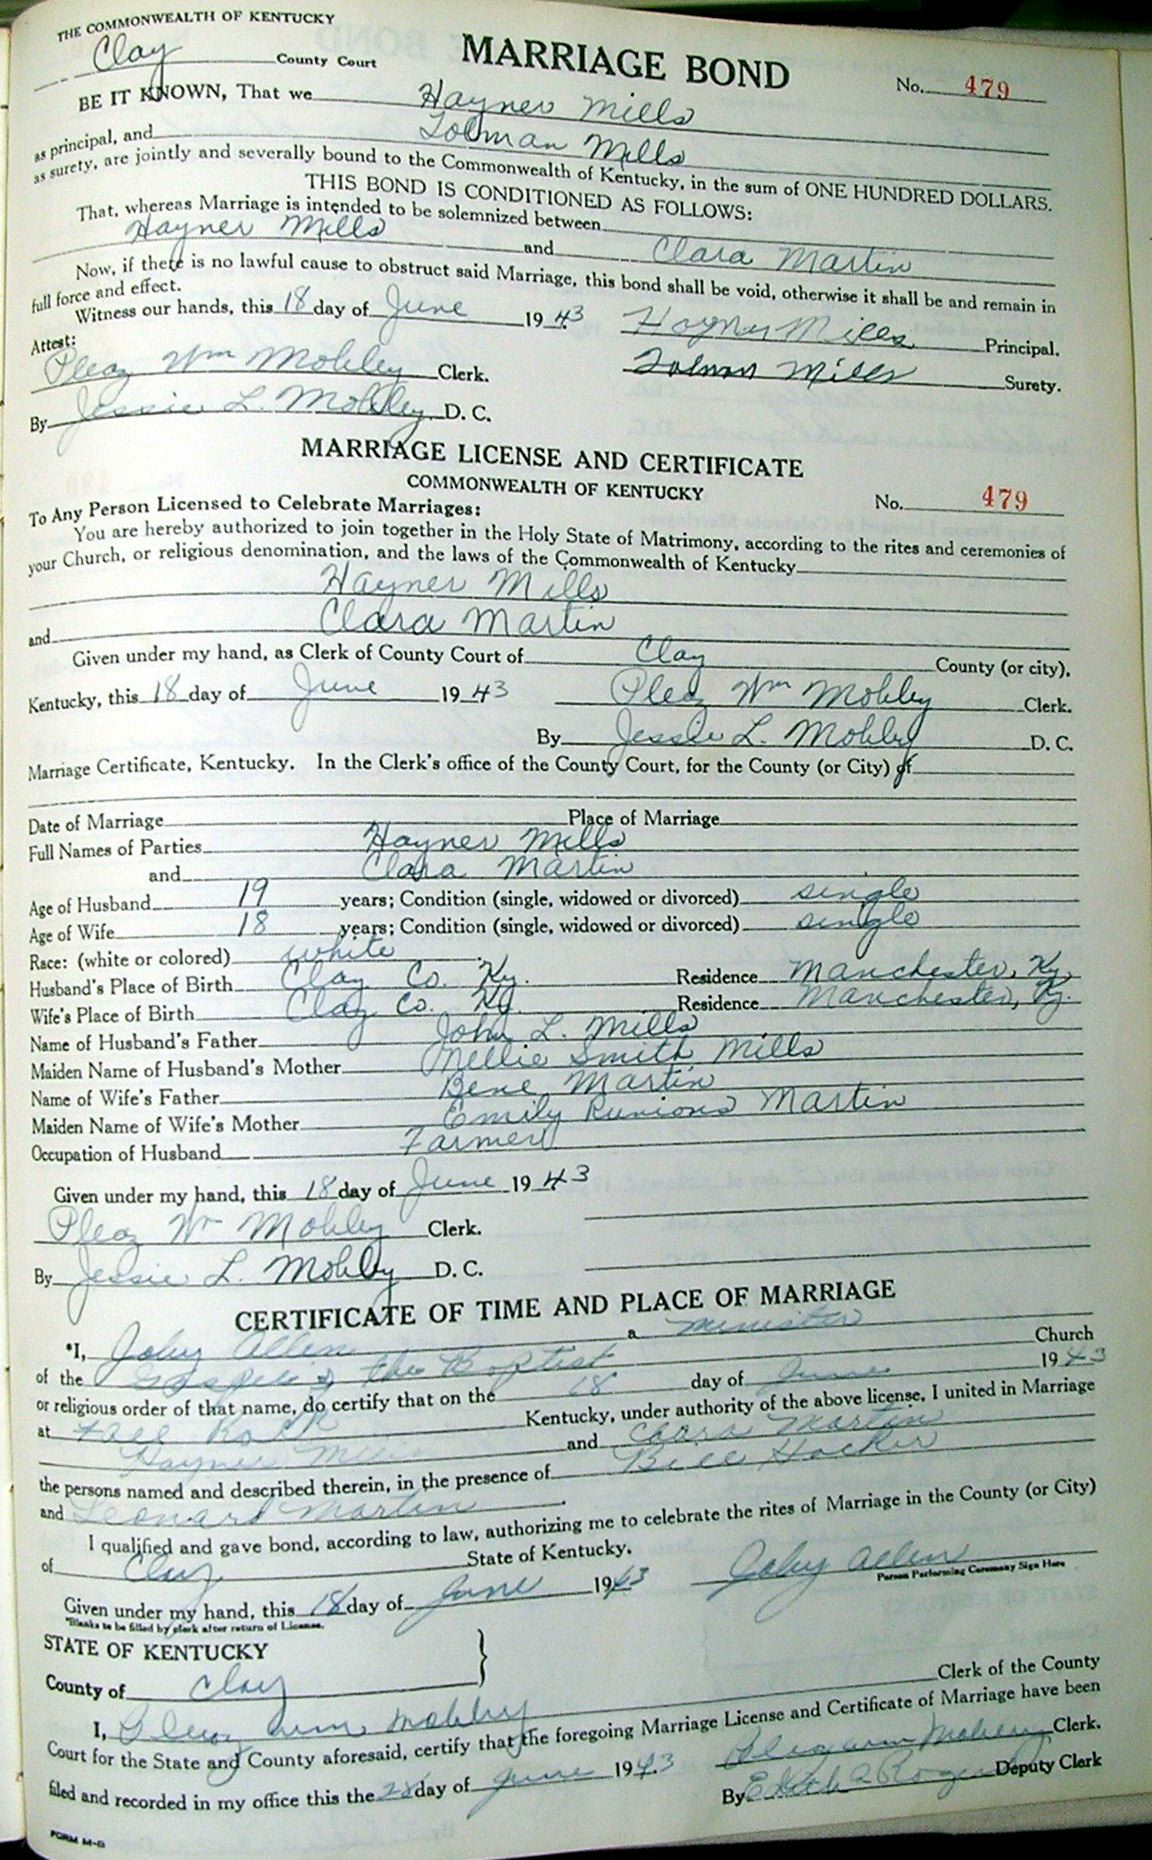 THE COMMONWEALTH OF KENTUCKY
Clay County Court MARRIAGE BOND No. 479
BE IT KNOWN, That we Hayner Mills
as principal, and Tolman Mills
as surety, are jointly and severally bound to the Commonwealth of Kentucky, in the sum of ONE HUNDRED DOLLARS.
THIS BOND IS CONDITIONED AS FOLLOWS:
That, whereas Marriage is intended to be solemnized between
Hayner Mills and Clara Martin
Now, if there is no lawful cause to obstruct said Marriage, this bond shall be void, otherwise it shall be and remain in
full force and effect.
Witness our hands, this 18 day of June 1943 Hayner Mills Principal.
Attest:
Pleaz Wm Mobley Clerk. Tolman Mills Surety.
By Jessie L. Mobley D. C.
MARRIAGE LICENSE AND CERTIFICATE
COMMONWEALTH OF KENTUCKY No. 479
To Any Person Licensed to Celebrate Marriages:
You are hereby authorized to join together in the Holy State of Matrimony, according to the rites and ceremonies of
your Church, or religious denomination, and the laws of the Commonwealth of Kentucky
Hayner Mills
and Clara Martin
Given under my hand, as Clerk of County Court of Clay County (or city),
Kentucky, this 18 day of June 1943 Pleaz Wm Mobley Clerk.
By Jessie L. Mobley D. C.
Marriage Certificate, Kentucky. In the Clerk's office of the County Court, for the County (or City) of
Date of Marriage Place of Marriage
Full Names of Parties Hayner Mills
and Clara Martin
Age of Husband 19 years; Condition (single, widowed or divorced) single
Age of Wife 18 years; Condition (single, widowed or divorced) single
Race: (white or colored) white
Husband's Place of Birth Clay Co. Ky. Residence Manchester, Ky.
Wife's Place of Birth Clay Co. Ky. Residence Manchester, Ky.
Name of Husband's Father John L. Mills
Maiden Name of Husband's Mother Nellie Smith Mills
Name of Wife's Father Bene Martin
Maiden Name of Wife's Mother Emily Runions Martin
Occupation of Husband Farmer
Given under my hand, this 18 day of June 1943
Pleaz Wm Mobley Clerk.
By Jessie L. Mobley D. C.
CERTIFICATE OF TIME AND PLACE OF MARRIAGE
*I, Joby Allen a minister
of the Gospel of the Baptist Church
or religious order of that name, do certify that on the 18 day of June 1943
at Fall Rock Kentucky, under authority of the above license, I united in Marriage
Hayner Mills and Clara Martin
the persons named and described therein, in the presence of Bill Hacker
and Leonard Martin
I qualified and gave bond, according to law, authorizing me to celebrate the rites of Marriage in the County (or City)
of Clay State of Kentucky.
Given under my hand, this 18 day of June 1943 Joby Allen
Person Performing Ceremony Sign Here
*Blanks to be filled by clerk after return of License.
STATE OF KENTUCKY
County of Clay
I, Pleaz Wm Mobley Clerk of the County
Court for the State and County aforesaid, certify that the foregoing Marriage License and Certificate of Marriage have been
filed and recorded in my office this the 28 day of June 1943. Pleaz Wm Mobley Clerk.
By Edith Deputy Clerk
FORM M-B